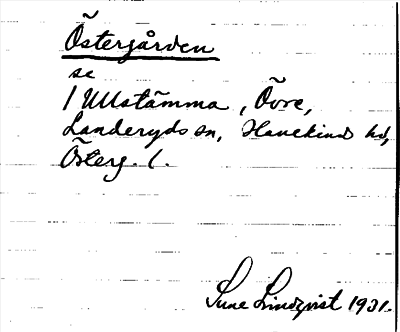 Östergården
se
/ Ullstämma, Övre,
Landeryds sn, Hanekinds hd,
Österg. l.
Sune Lindqvist 1931.